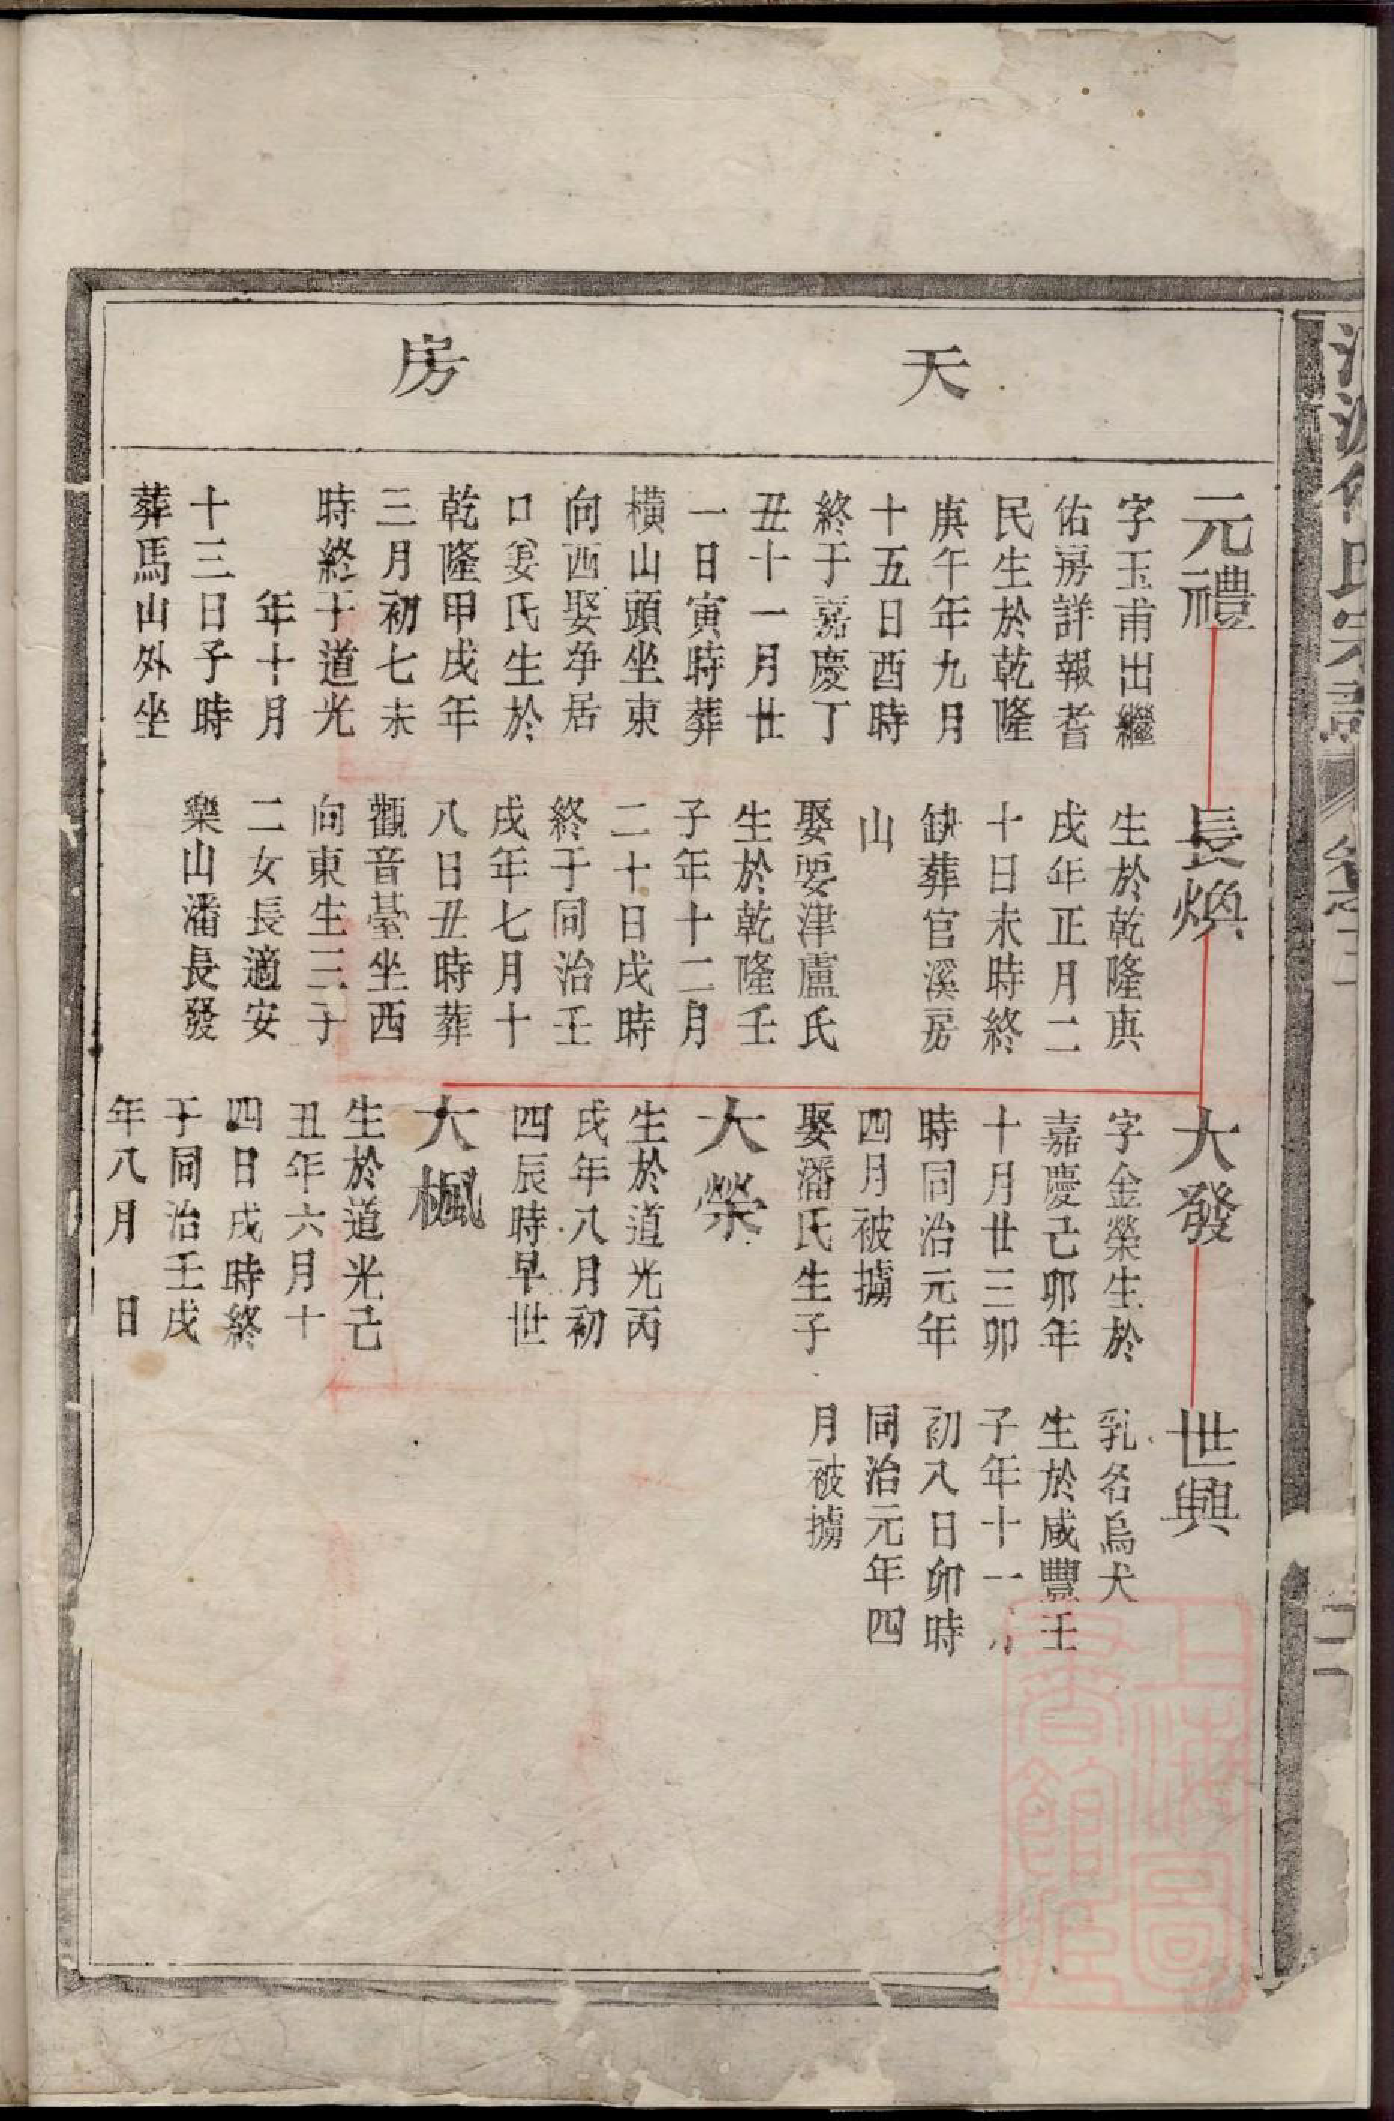 天房
元禮
字玉甫出繼
佑房詳報耆
民生於乾隆
庚午年九月
十五日酉時
終于嘉慶丁
丑十一月廿
一日寅時葬
橫山頭坐東
向西娶爭居
口姜氏生於
乾隆甲戌年
三月初七未
時終于道光
年十月
十三日子時
葬馬山外坐
長煥
生於乾隆庚
戌年正月二
十日未時終
缺葬官溪房
山
娶要津盧氏
生於乾隆壬
子年十二月
二十日戌時
終于同治壬
戌年七月十
八日丑時葬
觀音臺坐西
向東生三子
二女長適安
樂山潘長發
大發
字金榮生於
嘉慶己卯年
十月廿三卯
時同治元年
四月被擄
娶潘氏生子
大榮
生於道光丙
戌年八月初
四辰時早世
大楓
生於道光己
丑年六月十
四日戌時終
于同治壬戌
年八月 日
世興
乳名烏犬
生於咸豐壬
子年十一月
初八日卯時
同治元年四
月被擄
氏宗譜
卷之二
二
上海圖書館藏